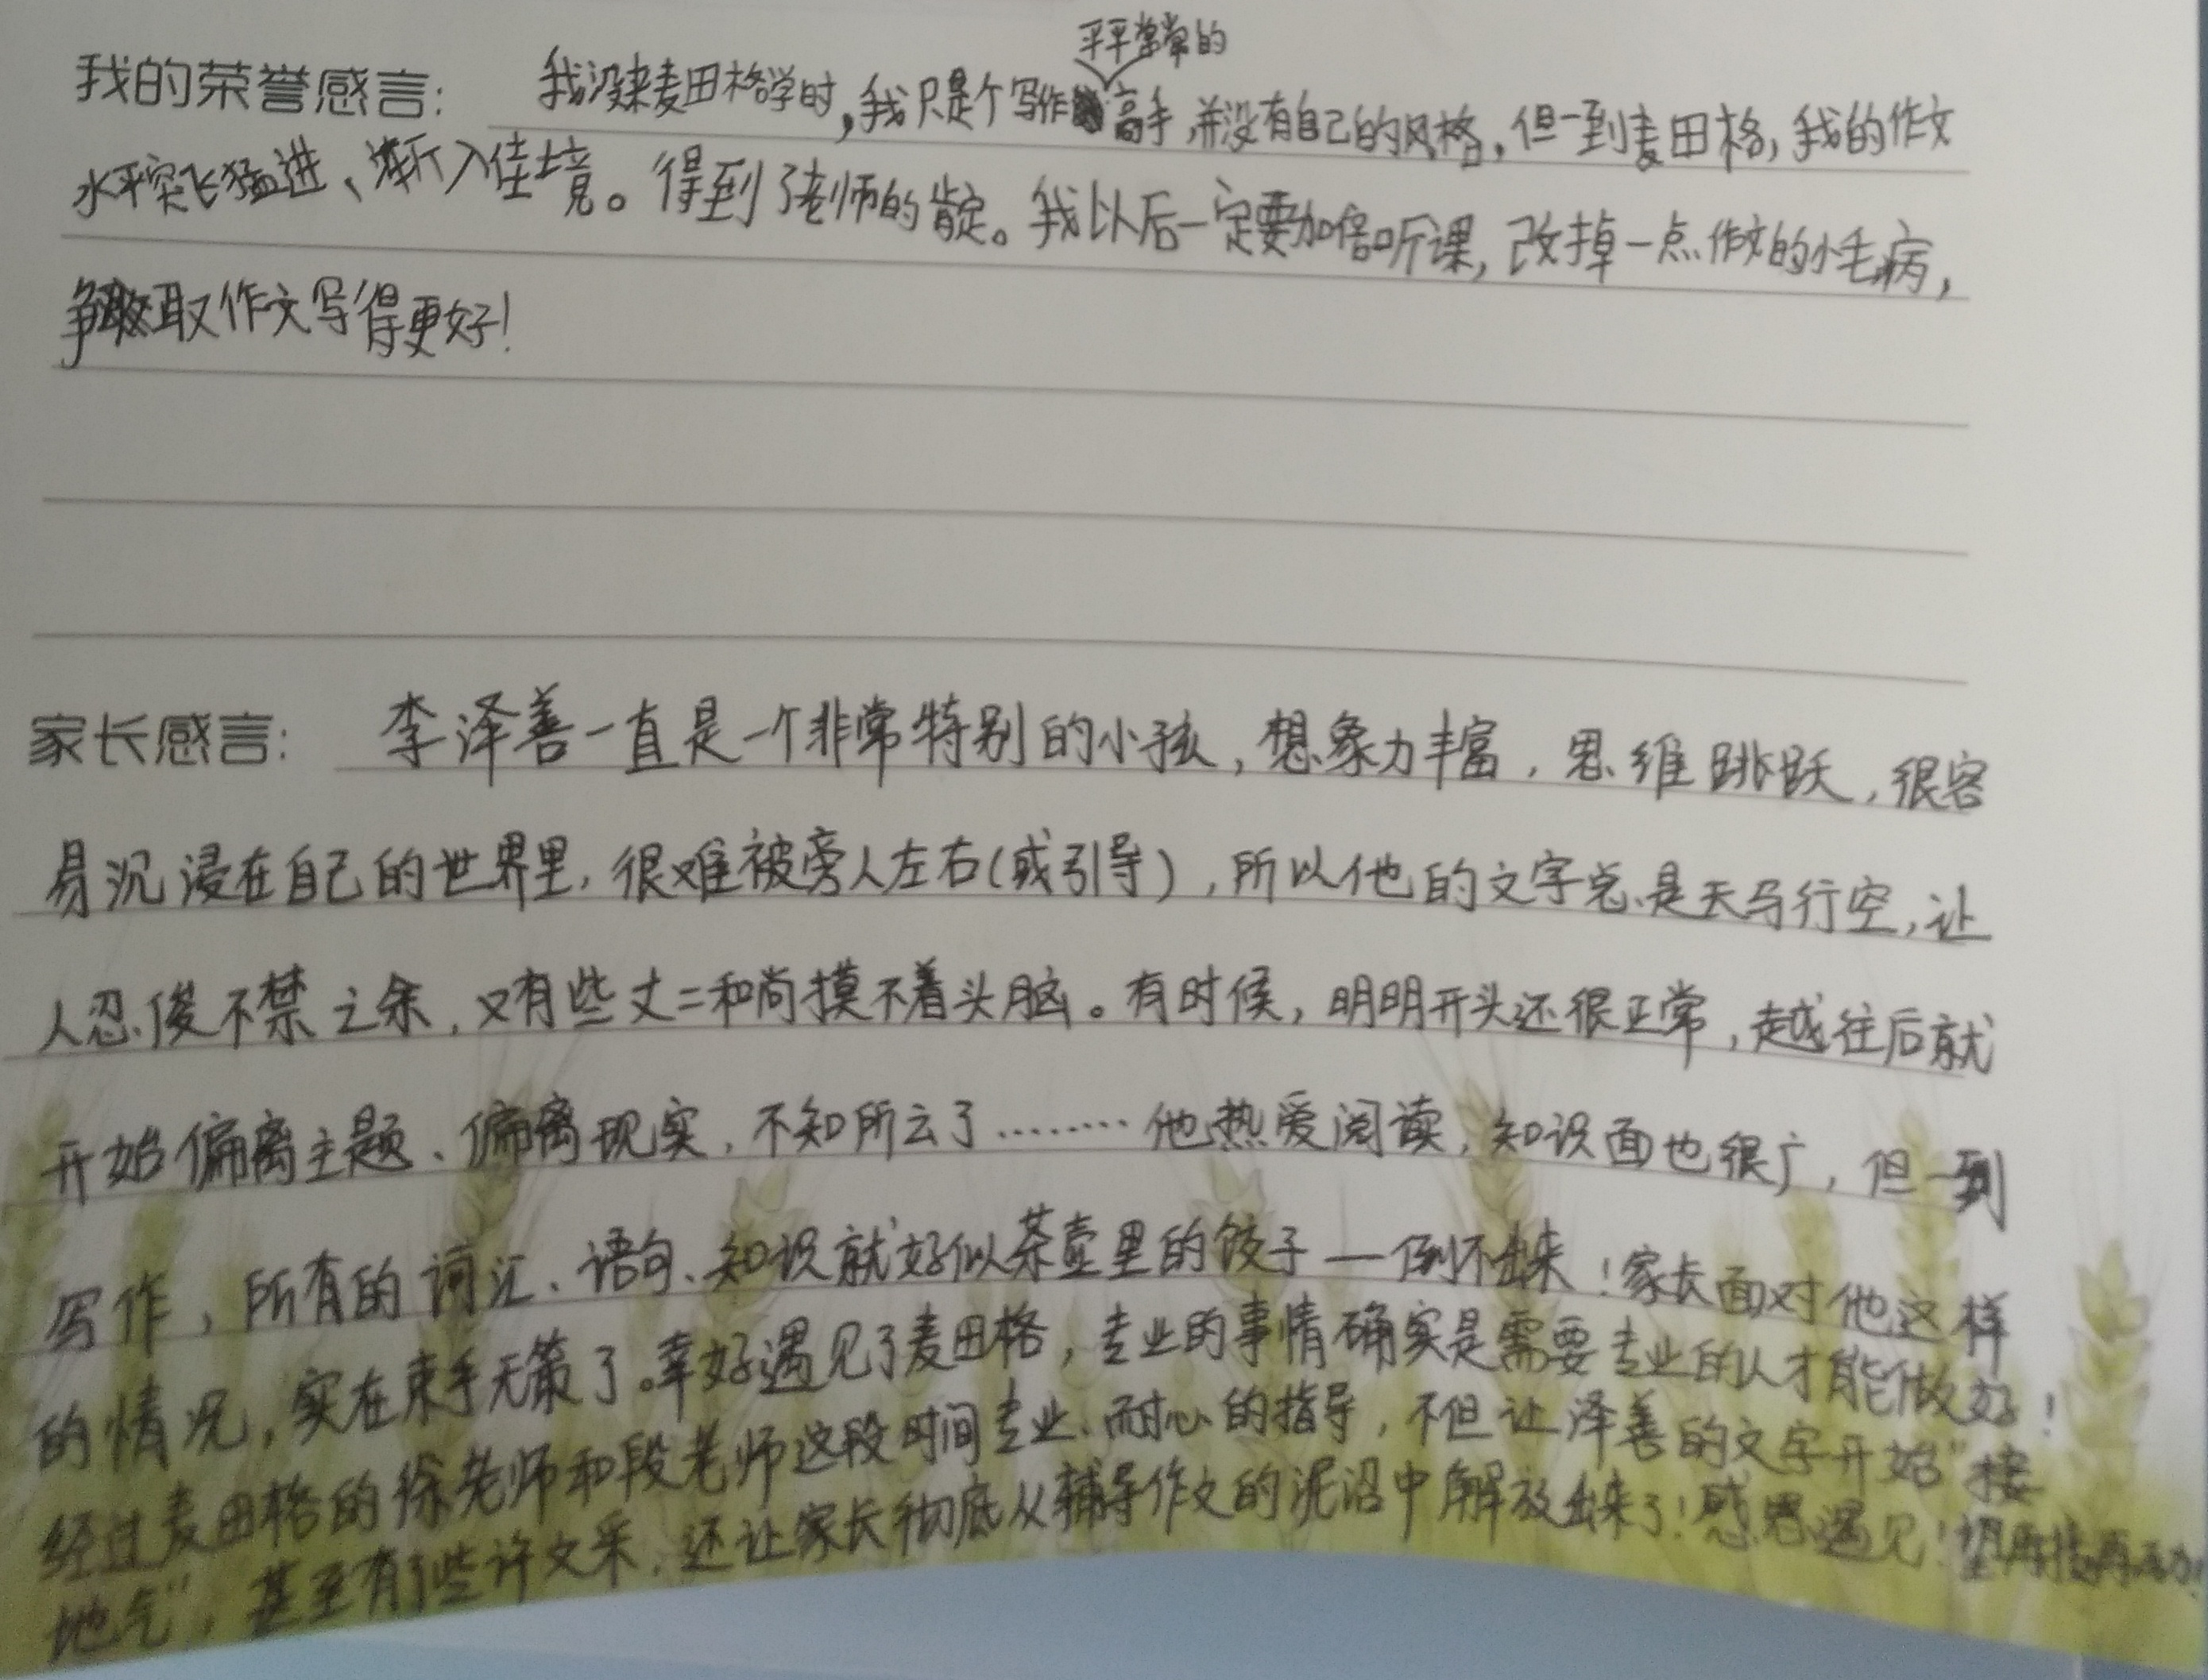 平平常常的
我的荣誉感言: 我没来麦田格学时,我只是个写作高手,并没有自己的风格,但一到麦田格,我的作文
水平突飞猛进、渐入佳境。得到了老师的肯定。我以后一定要加倍听课,改掉一点作文的小毛病,
争取作文写得更好!
家长感言: 李泽善一直是一个非常特别的小孩,想象力丰富,思维跳跃,很容
易沉浸在自己的世界里,很难被旁人左右(或引导),所以他的文字总是天马行空,让
人忍俊不禁之余,又有些丈二和尚摸不着头脑。有时候,明明开头还很正常,越往后就
开始偏离主题、偏离现实,不知所云了………他热爱阅读,知识面也很广,但一到
写作,所有的词汇、语句、知识就好似茶壶里的饺子—倒不出来!家长面对他这样
的情况,实在束手无策了。幸好遇见了麦田格,专业的事情确实是需要专业的人才能做好!
经过麦田格的徐老师和段老师这段时间专业、耐心的指导,不但让泽善的文字开始"接
地气",甚至有了些许文采,还让家长彻底从辅导作文的泥沼中解放出来了!感恩遇见!望再接再厉!